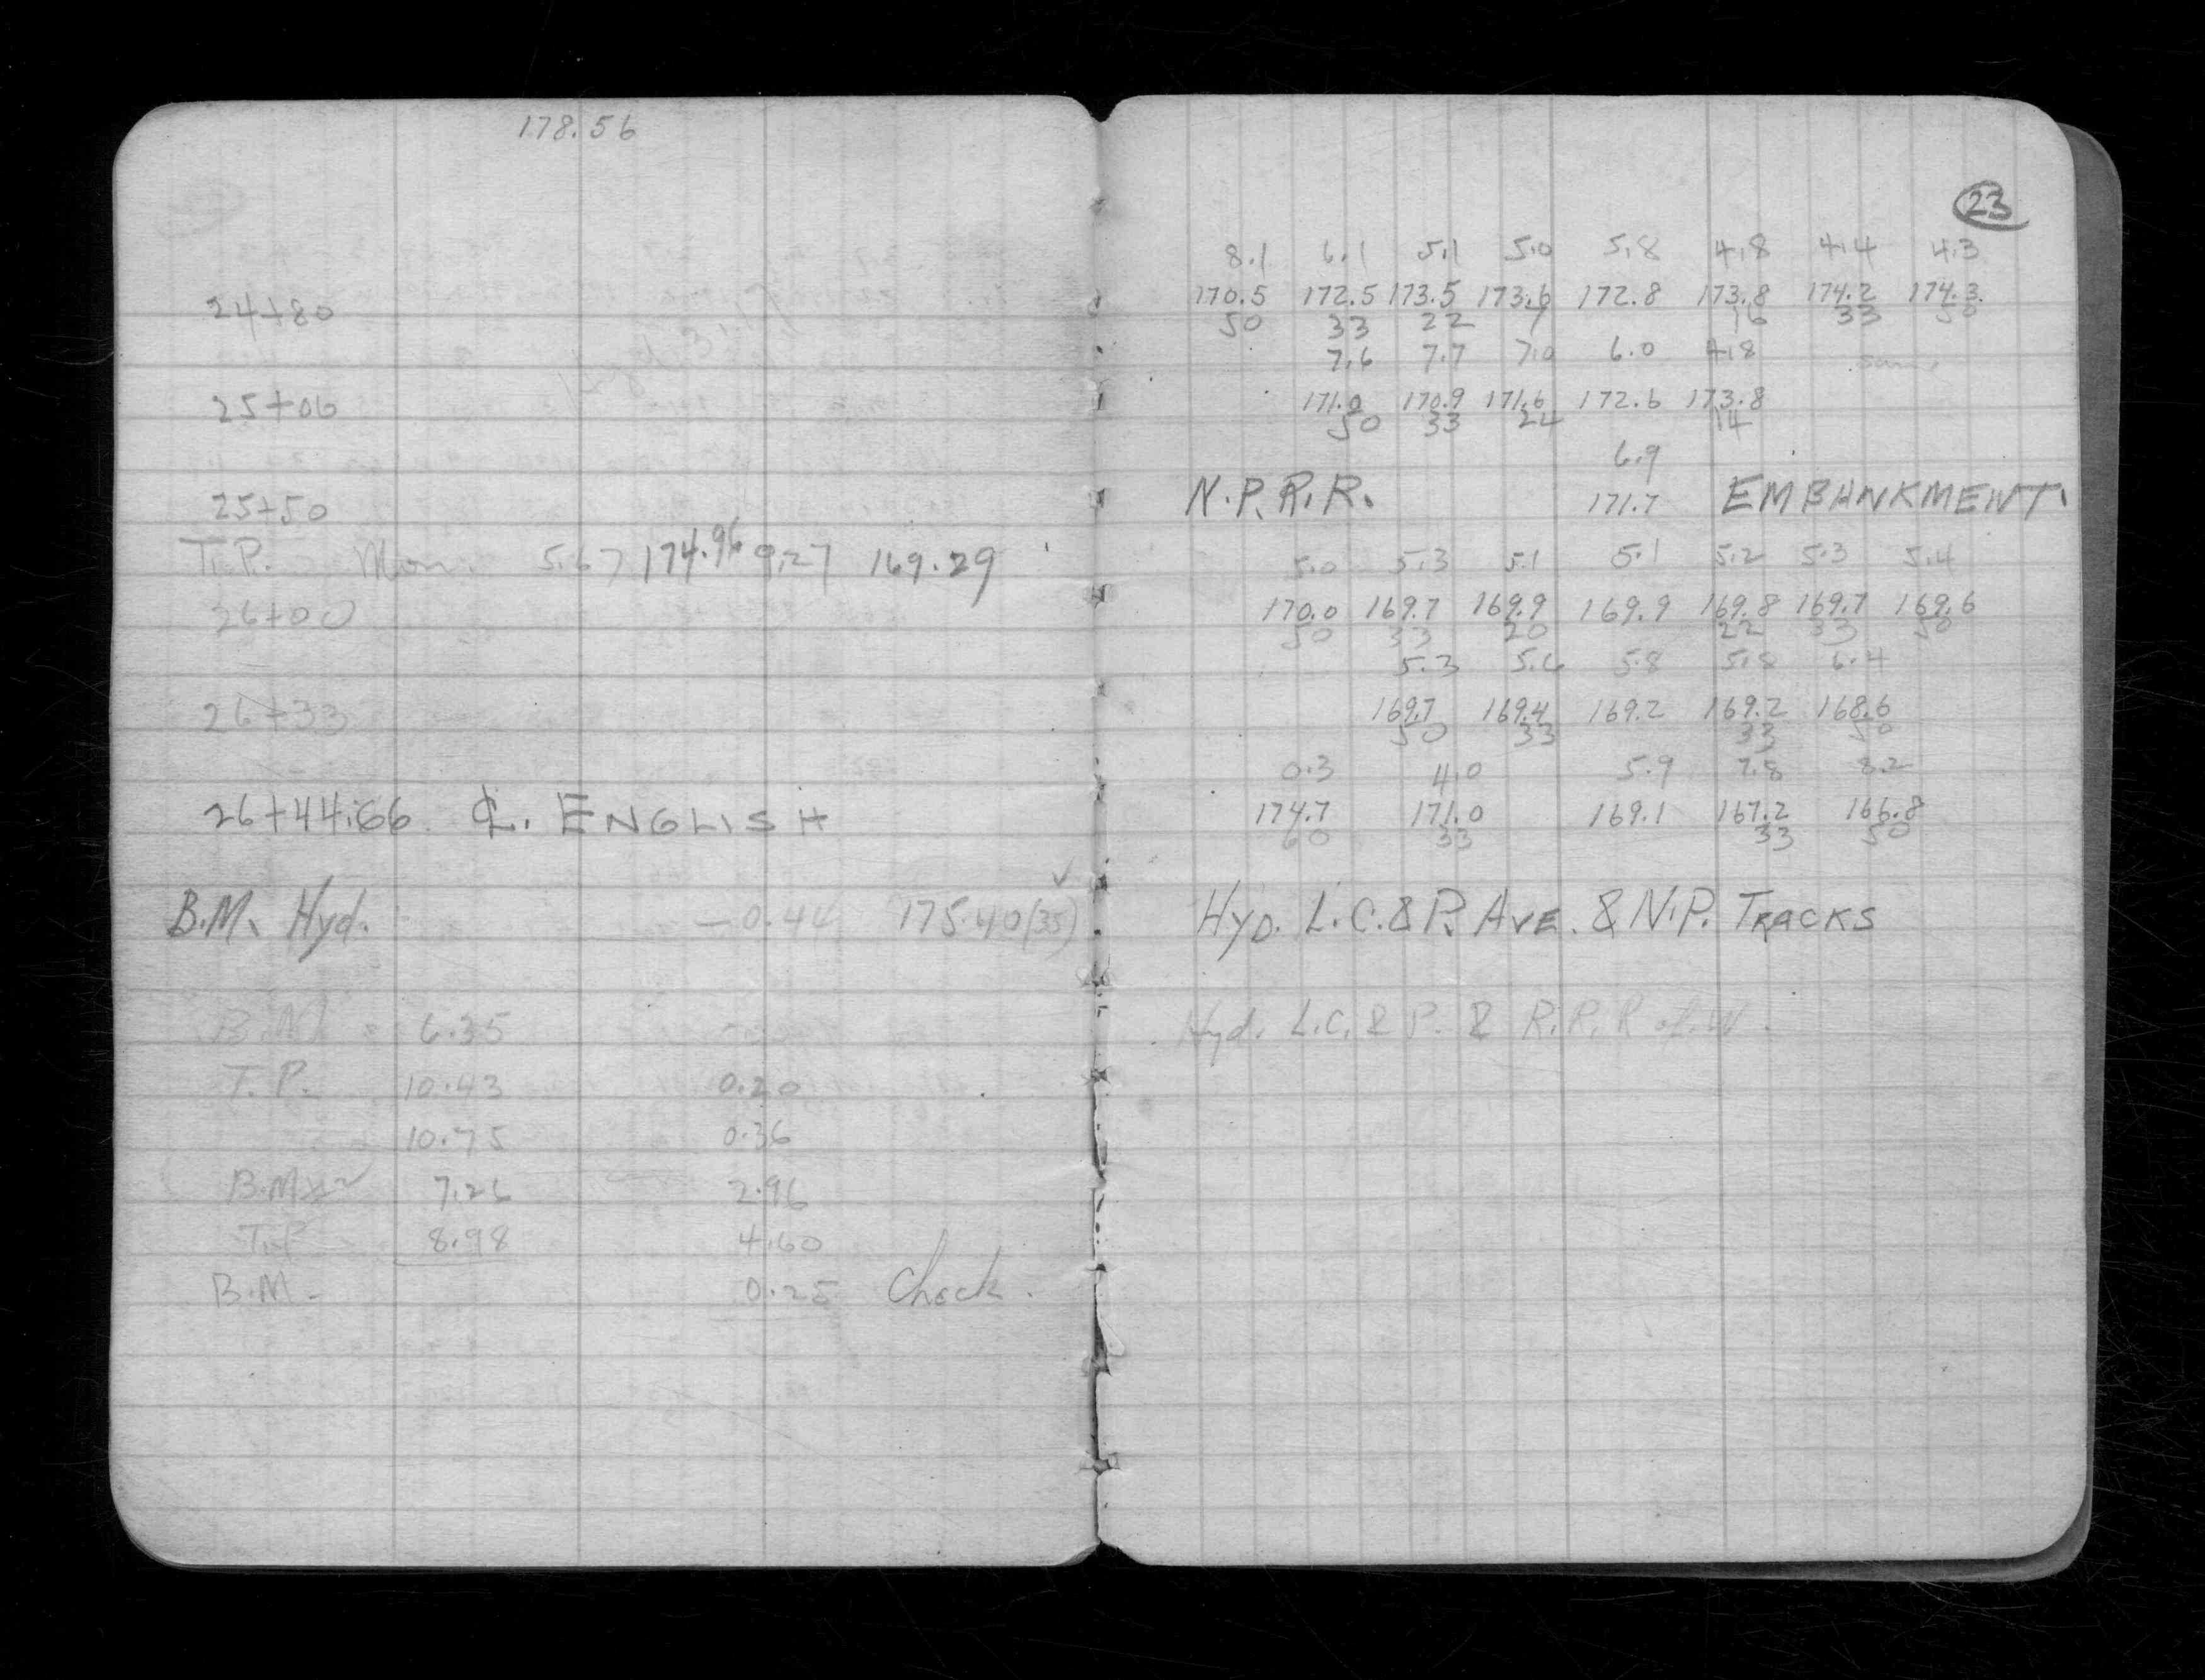 178.56
24+80
25+06
25+50
T.P. Mon. 5.67 174.96 9.27 169.29
26+00
26+33
26+44.66 ℄. ENGLISH
B.M. Hyd. -0.44 175.40(35) ✓
B.M. 6.35
T.P. 10.43 0.20
10.75 0.36
B.M. 7.26 2.96
T.P. 8.98 4.60
B.M. 0.25 Check.
23
8.1 6.1 5.1 5.0 5.8 4.8 4.4 4.3
170.5 172.5 173.5 173.6 172.8 173.8 174.2 174.3
50 33 22 16 33 50
7.6 7.7 7.0 6.0 4.8
171.0 170.9 171.6 172.6 173.8
50 33 24 14
6.9
N.P.R.R. 171.7 EMBANKMENT.
5.0 5.3 5.1 5.1 5.2 5.3 5.4
170.0 169.7 169.9 169.9 169.8 169.7 169.6
50 33 20 22 33 50
5.3 5.6 5.8 5.8 6.4
169.7 169.4 169.2 169.2 168.6
50 33 33 50
0.3 4.0 5.9 7.8 8.2
174.7 171.0 169.1 167.2 166.8
60 33 33 50
HYD. L.C.&P. AVE. & N.P. TRACKS
Hyd. L.C. & P. & R.R. R of W.